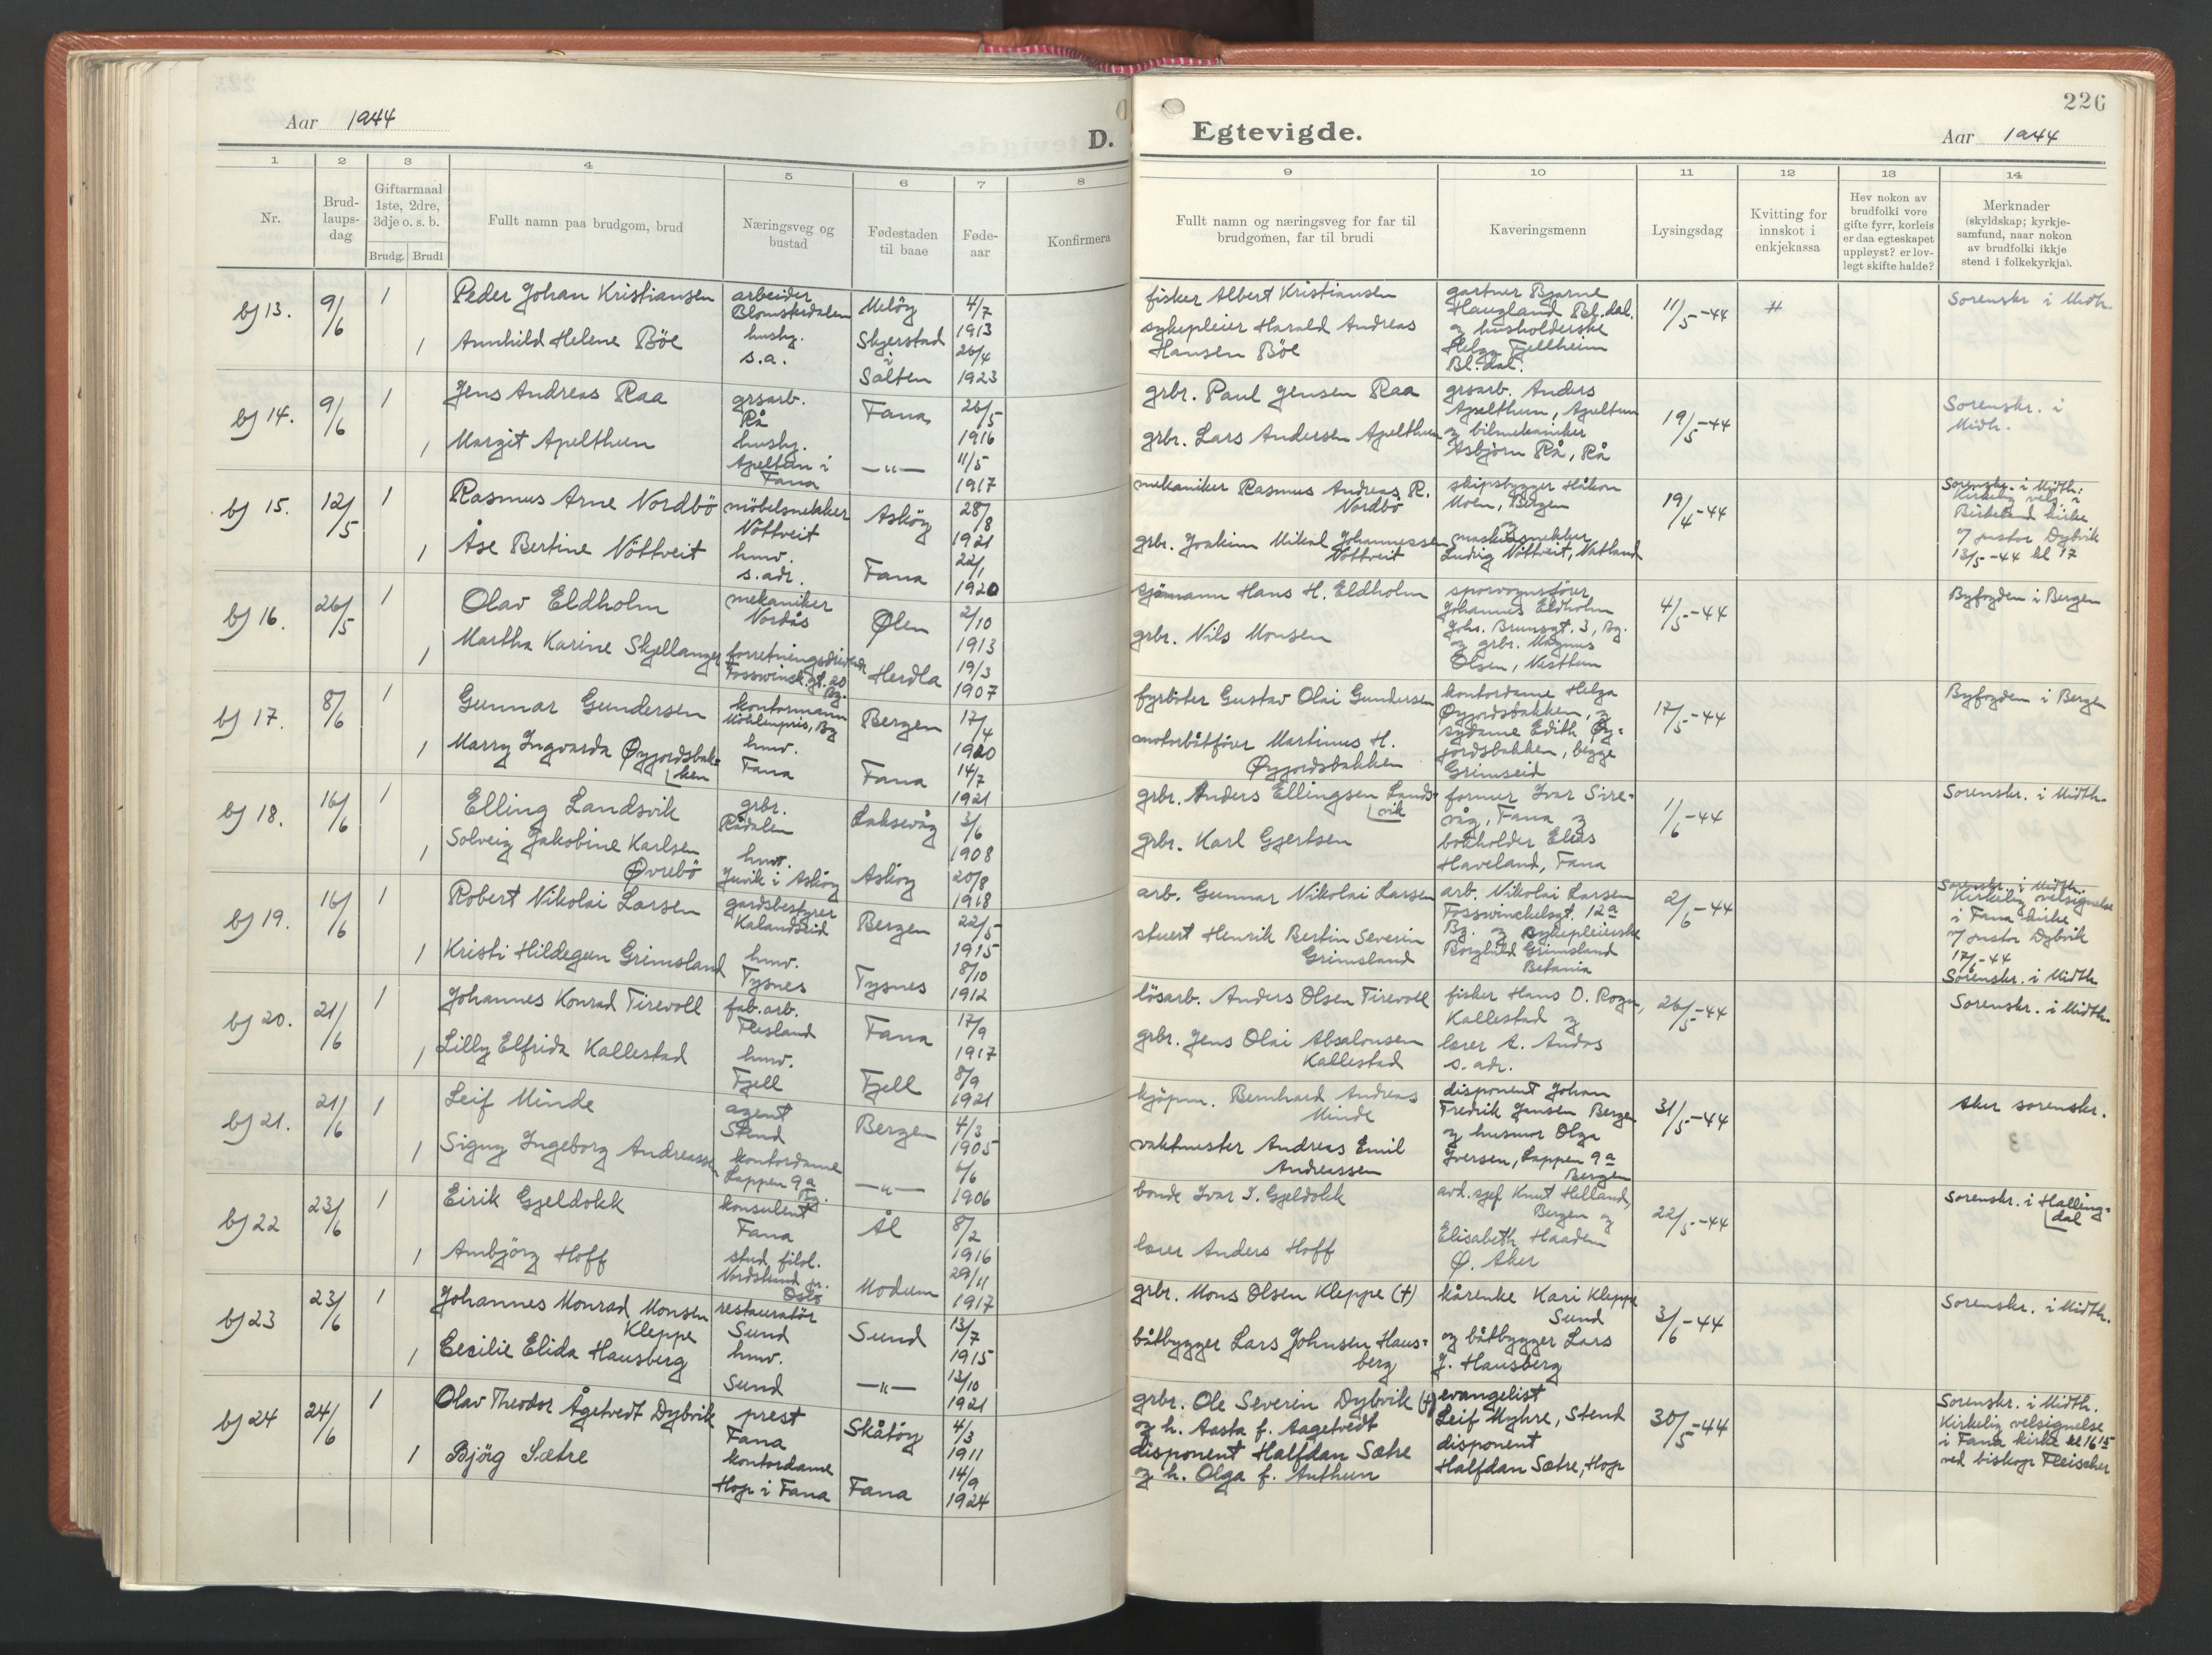 Aar 1944
D. Egtevigde.
226
Aar 1944
1 2 3 4 5 6 7 8 9 10 11 12 13 14
Nr.
Brud-
laups-
dag
Giftarmaal
1ste, 2dre,
3dje o. s. b.
Brudg. Brudi
Fullt namn paa brudgom, brud
Næringsveg og
bustad
Fødestaden
til baae
Føde-
aar
Konfirmera
Fullt namn og næringsveg for far til
brudgomen, far til brudi
Kaveringsmenn
Lysingsdag
Kvitting for
innskot i
enkjekassa
Hev nokon av
brudfolki vore
gifte fyrr, korleis
er daa egteskapet
uppløyst? er lov-
legt skifte halde?
Merknader
(skyldskap; kyrkje-
samfund, naar nokon
av brudfolki ikkje
stend i folkekyrkja).
bj 13.
9/6
1
Peder Johan Kristiansen
arbeider
Blomsterdalen
Meløy
4/7
1913
1
Annhild Helene Böe
husbg.
s.a.
Skjerstad
i
Salten
26/4
1923
fisker Albert Kristiansen
sykepleier Harald Andreas
Hansen Böe
gartner Bjarne
Haugland Bl.dal.
og husholderske
Helga Fjellheim
Bl.dal.
11/5-44
#
Sorenskr. i Midh.
bj 14.
9/6
1
Jens Andreas Raa
grsarb.
Rå
Fana
26/5
1916
1
Margit Apelthun
husbg.
Apeltun i
Fana
—"—
11/5
1917
grbr. Paul Jensen Raa
grbr. Lars Andersen Apelthun
grsarb. Anders
Apelthun, Apeltun
og bilmekaniker
Asbjörn Rå, Rå
19/5-44
Sorenskr. i
Midh.
bj 15.
12/5
1
Rasmus Arne Nordbö
möbelsnekker
Nöttveit
Asköy
28/8
1921
1
Åse Bertine Nöttveit
hmv.
s.adr.
Fana
22/1
1920
mekaniker Rasmus Andreas R.
Nordbö
grbr. Joakim Mikal Johannessen
Nöttveit
skipsbygger Håkon
Moen, Bergen
og
maskinsnekker
Ludvig Nöttveit, Natland
19/4-44
Sorenskr. i Midth.
Kirkelig vels. i
Birkeland kirke
v/ pastor Dybvik
13/5-44 kl 17
bj 16.
26/5
1
Olav Eldholm
mekaniker
Nordås
Ølen
2/10
1913
1
Martha Karine Skjellanger
forretningsdrivende
Fosswinck.gt. 20
Bg.
Herdla
19/3
1907
sjömann Hans H. Eldholm
grbr. Nils Monsen
sporvognsförer
Johannes Eldholm
Johs. Brunsgt. 3, Bg.
og grbr. Magnus
Olsen, Nestthun
4/5-44
Byfogden i Bergen
bj 17.
8/6
1
Gunnar Gundersen
kontormann
Möhlenpris, Bg
Bergen
17/4
1920
1
Marry Ingvarda Øygordsbak-
ken
hmv.
Fana
Fana
14/7
1921
fyrböter Gustav Olai Gundersen
motorbåtförer Martinus H.
Øygordsbakken
kontordame Helga
Øygordsbakken, og
sydame Edith Øy-
gordsbakken, begge
Grimseid
17/5-44
Byfogden i Bergen
bj 18.
16/6
1
Elling Landsvik
grbr.
Rådalen
Laksevåg
3/6
1908
1
Solveig Jakobine Karlsen
Øvrebö
hmv.
Juvik i Asköy
Asköy
20/8
1918
grbr. Anders Ellingsen Lands-
vik
grbr. Karl Gjertsen
former Ivar Sire-
våg, Fana og
bokholder Elias
Haveland, Fana
1/6-44
Sorenskr. i Midth.
bj 19.
16/6
1
Robert Nikolai Larsen
gardsbestyrer
Kalandseid
Bergen
22/5
1915
1
Kristi Hildegun Grimsland
hmv.
Tysnes
Tysnes
8/10
1912
arb. Gunnar Nikolai Larsen
stuert Henrik Bertin Severin
Grimsland
arb. Nikolai Larsen
Fosswinckelsgt. 12a
Bg. og sykepleierske
Borghild Grimsland
Betania
2/6-44
Sorenskr. i Midth.
Kirkelig velsignelse
i Fana kirke
v/ pastor Dybvik
17/6-44
Sorenskr. i Midth
bj 20.
21/6
1
Johannes Konrad Tirevoll
fab.arb.
Flesland
Fana
17/9
1917
1
Lilly Elfrida Kallestad
hmv.
Fjell
Fjell
8/9
1921
lösarb. Anders Olsen Tirevoll
grbr. Jens Olai Absalonsen
Kallestad
fisker Hans O.
Kallestad og
lærer A. Andås
s. adr.
26/5-44
Sorenskr. i Midth.
bj 21.
21/6
1
Leif Minde
agent
Stend
Bergen
4/3
1905
1
Signy Ingeborg Andreassen
kontordame
Lappen 9a
Bg.
—"—
6/6
1906
kjöpm. Bernhard Andreas
Minde
vaktmester Andreas Emil
Andreassen
disponent Johan
Fredrik Jansen Bergen
og husmor Olga
Iversen, Lappen 9a
Bergen
31/5-44
Aker sorenskr.
bj 22
23/6
1
Eirik Gjeldokk
konsulent
Fana
Ål
8/2
1916
1
Ambjörg Hoff
stud. filol.
Nordstrand pr.
Oslo
Modum
29/11
1917
bonde Ivar I. Gjeldokk
lærer Anders Hoff
avd. sjef Knut Helland,
Bergen og
Elisabeth Haadem
Ø. Aker
22/5-44
Sorenskr. i Halling-
dal
bj 23
23/6
1
Johannes Monrad Monsen
Kleppe
restauratör
Sund
Sund
13/7
1915
1
Cecilie Elida Hausberg
hmv.
Sund
—"—
13/10
1921
grbr. Mons Olsen Kleppe (†)
båtbygger Lars Johnsen Haus-
berg
kårenke Kari Kleppe
Sund
og båtbygger Lars
J. Hausberg
3/6-44
Sorenskr. i Midth.
bj 24
24/6
1
Olav Theodor Ågetvedt Dybvik
prest
Fana
Skåtöy
4/3
1911
1
Björg Sætre
kontordame
Hop i Fana
Fana
14/9
1924
grbr. Ole Severin Dybvik (†)
og h. Aasta f. Aagetvedt
disponent Halfdan Sætre
og h. Olga f. Anthun
evangelist
Leif Myhre, Stend
disponent
Halfdan Sætre, Hop
30/5-44
Sorenskr. i Midth.
Kirkelig velsignelse
i Fana kirke kl 16 15
ved biskop Fleischer